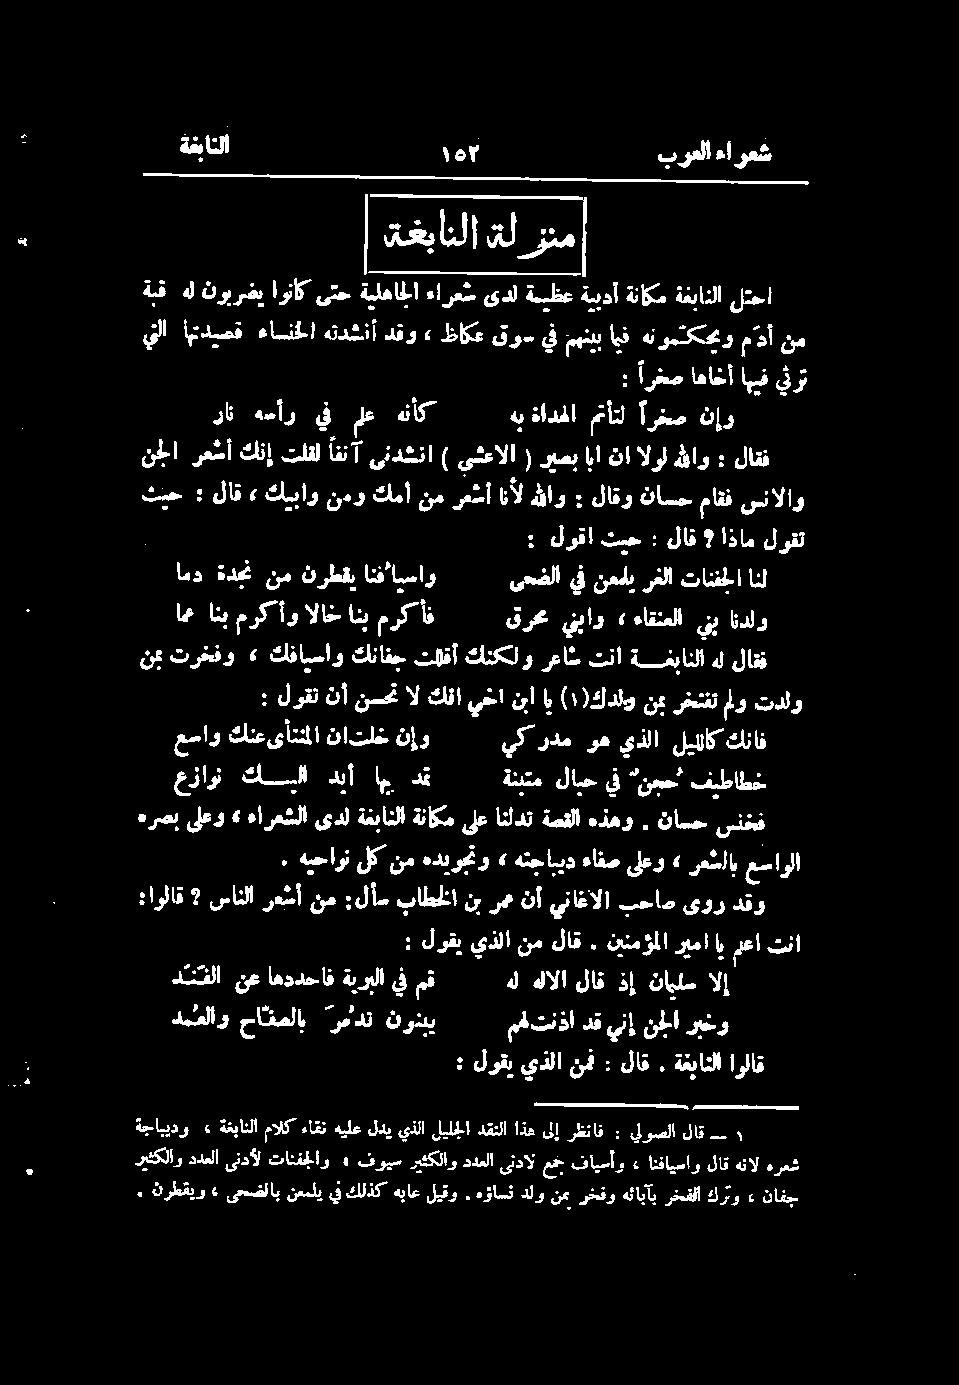 شعراء العرب ١٥٢ النابغة
منزلة النابغة
احتل النابغة مكانة أدبية عظيمة لدى شعراء الجاهلية حتى كانوا يضربون له قبة
من أدَم ويحكّمونه فيما بينهم في سوق عكاظ ، وقد أنشدته الخنساء قصيدتها التي
ترثي فيها أخاها صخراً :
وإن صخراً لتأتم الهداة به كأنه علم في رأسه نار
فقال : والله لولا ان ابا بصير ( الاعشى ) انشدني آنفاً لقلت إنك أشعر الجن
والانس فقام حسان وقال : والله لأنا أشعر من أمك ومن وابيك ، قال : حيث
تقول ماذا ? قال : حيث اقول :
لنا الجفنات الغر يلمعن في الضحى واسيافنا يقطرن من نجدة دما
ولدنا بني العنقاء ، وابني محرق فأكرم بنا خالا وأكرم بنا عما
فقال له النابغة انت شاعر ولكنك أقللت جفانك واسيافك ، وفخرت بمن
ولدت ولم تفتخر بمن ولدك(١) يا ابن اخي انك لا تحسن أن تقول :
فانك كالليل الذي هو مدركي وإن خلت ان المنتأى عنك واسع
خطاطيف حجن في حبال متينة تمد بها أيد اليك نوازع
فخنس حسان . وهذه القصة تدلنا على مكانة النابغة لدى الشعراء ، وعلى بصره
الواسع بالشعر ، وعلى صفاء ديباجته ، وتجويده من كل نواحيه .
وقد روى صاحب الاغاني أن عمر بن الخطاب سأل: من أشعر الناس ? قالوا:
انت اعلم يا امير المؤمنين . قال من الذي يقول :
إلا سليمان إذ قال الاله له قم في البرية فاحددها عن الفَنَد
وخبر الجن إني قد اذنت لهم يبنون تدمُرَ بالصفّاح والعُمد
قالوا النابغة . قال : فمن الذي يقول :
١ — قال الصولي : فانظر إلى هذا النقد الجليل الذي يدل عليه نقاء كلام النابغة ، وديباجة
شعره لانه قال واسيافنا ، وأسياف جمع لادنى العدد والكثير سيوف ، والجفنات لأدنى العدد والكثير
جفان ، وترك الفخر بآبائه وفخر بمن ولد نساؤه . وقيل عابه كذلك في يلمعن بالضحى ، ويقطرن .